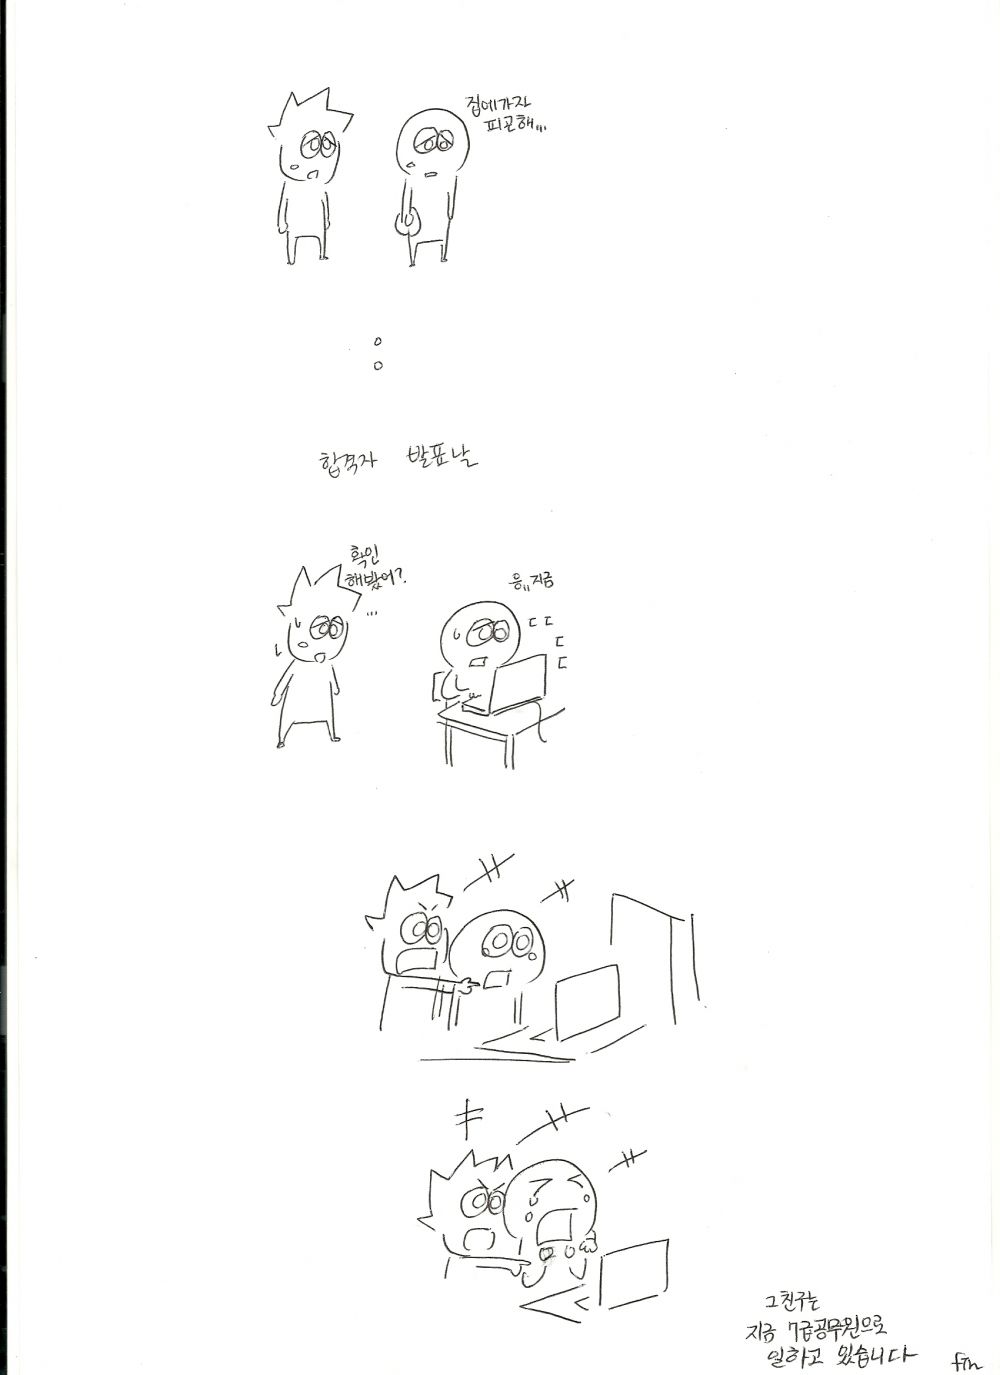 집에가자
피곤해...
합격자 발표날
확인
해봤어?
...
응.. 지금
ㄷㄷ
ㄷ
ㄷ
그 친구는
지금 7급공무원으로
일하고 있습니다
fin